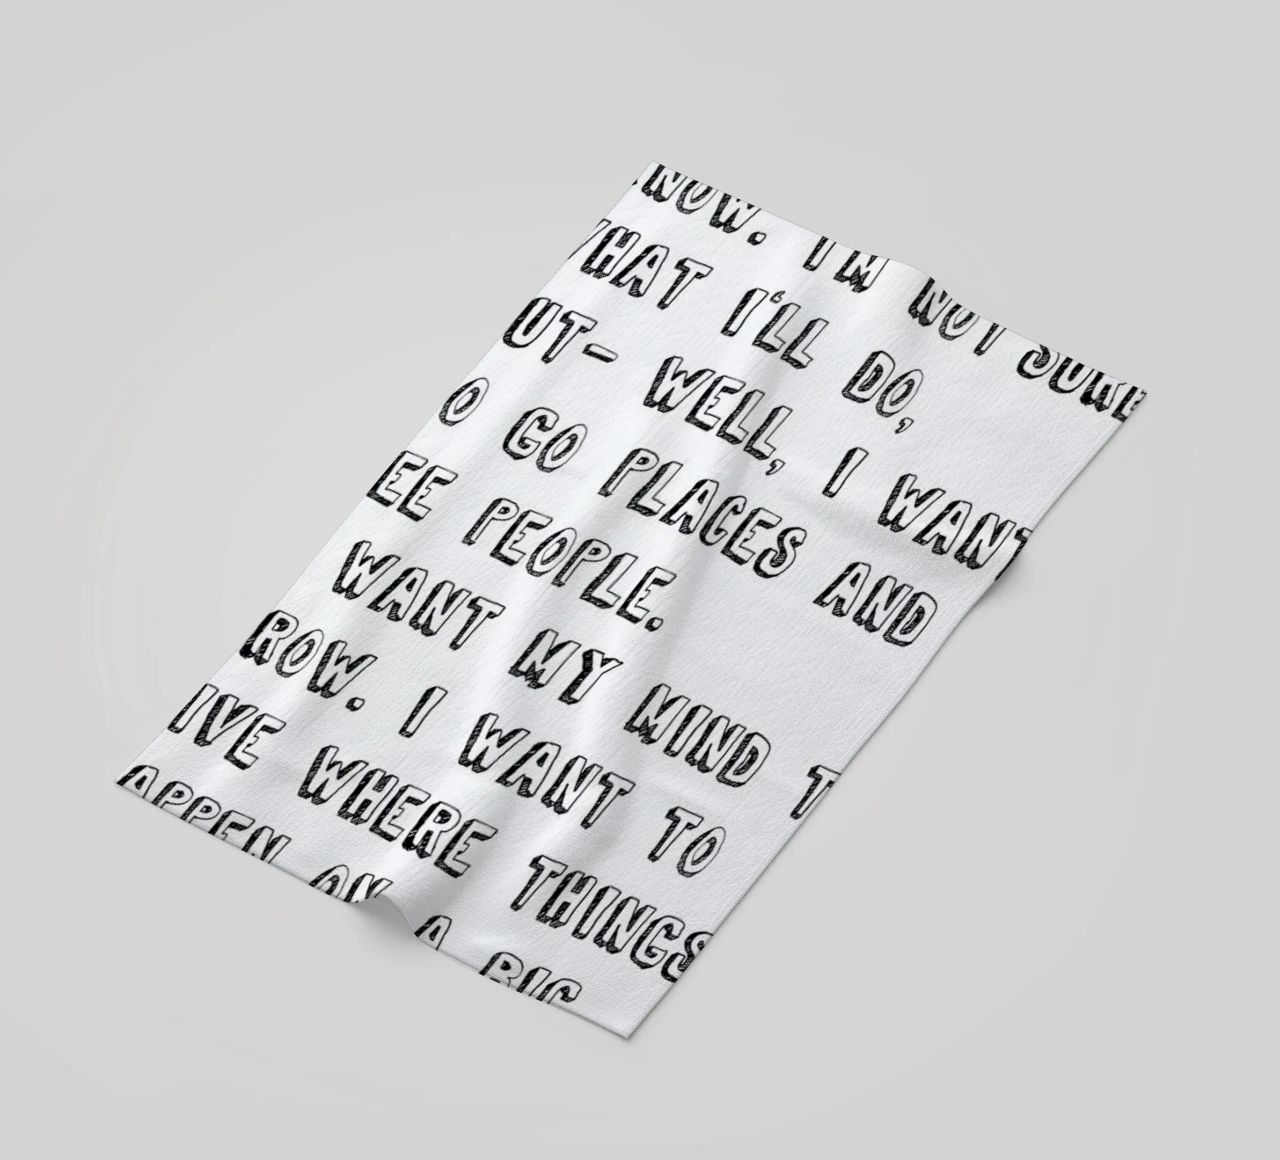 NOW. I'M NOT SURE
WHAT I'LL DO,
UT- WELL, I WANT
O GO PLACES AND
EE PEOPLE.
WANT MY MIND T
ROW. I WANT TO
IVE WHERE THINGS
APPEN ON A BIG